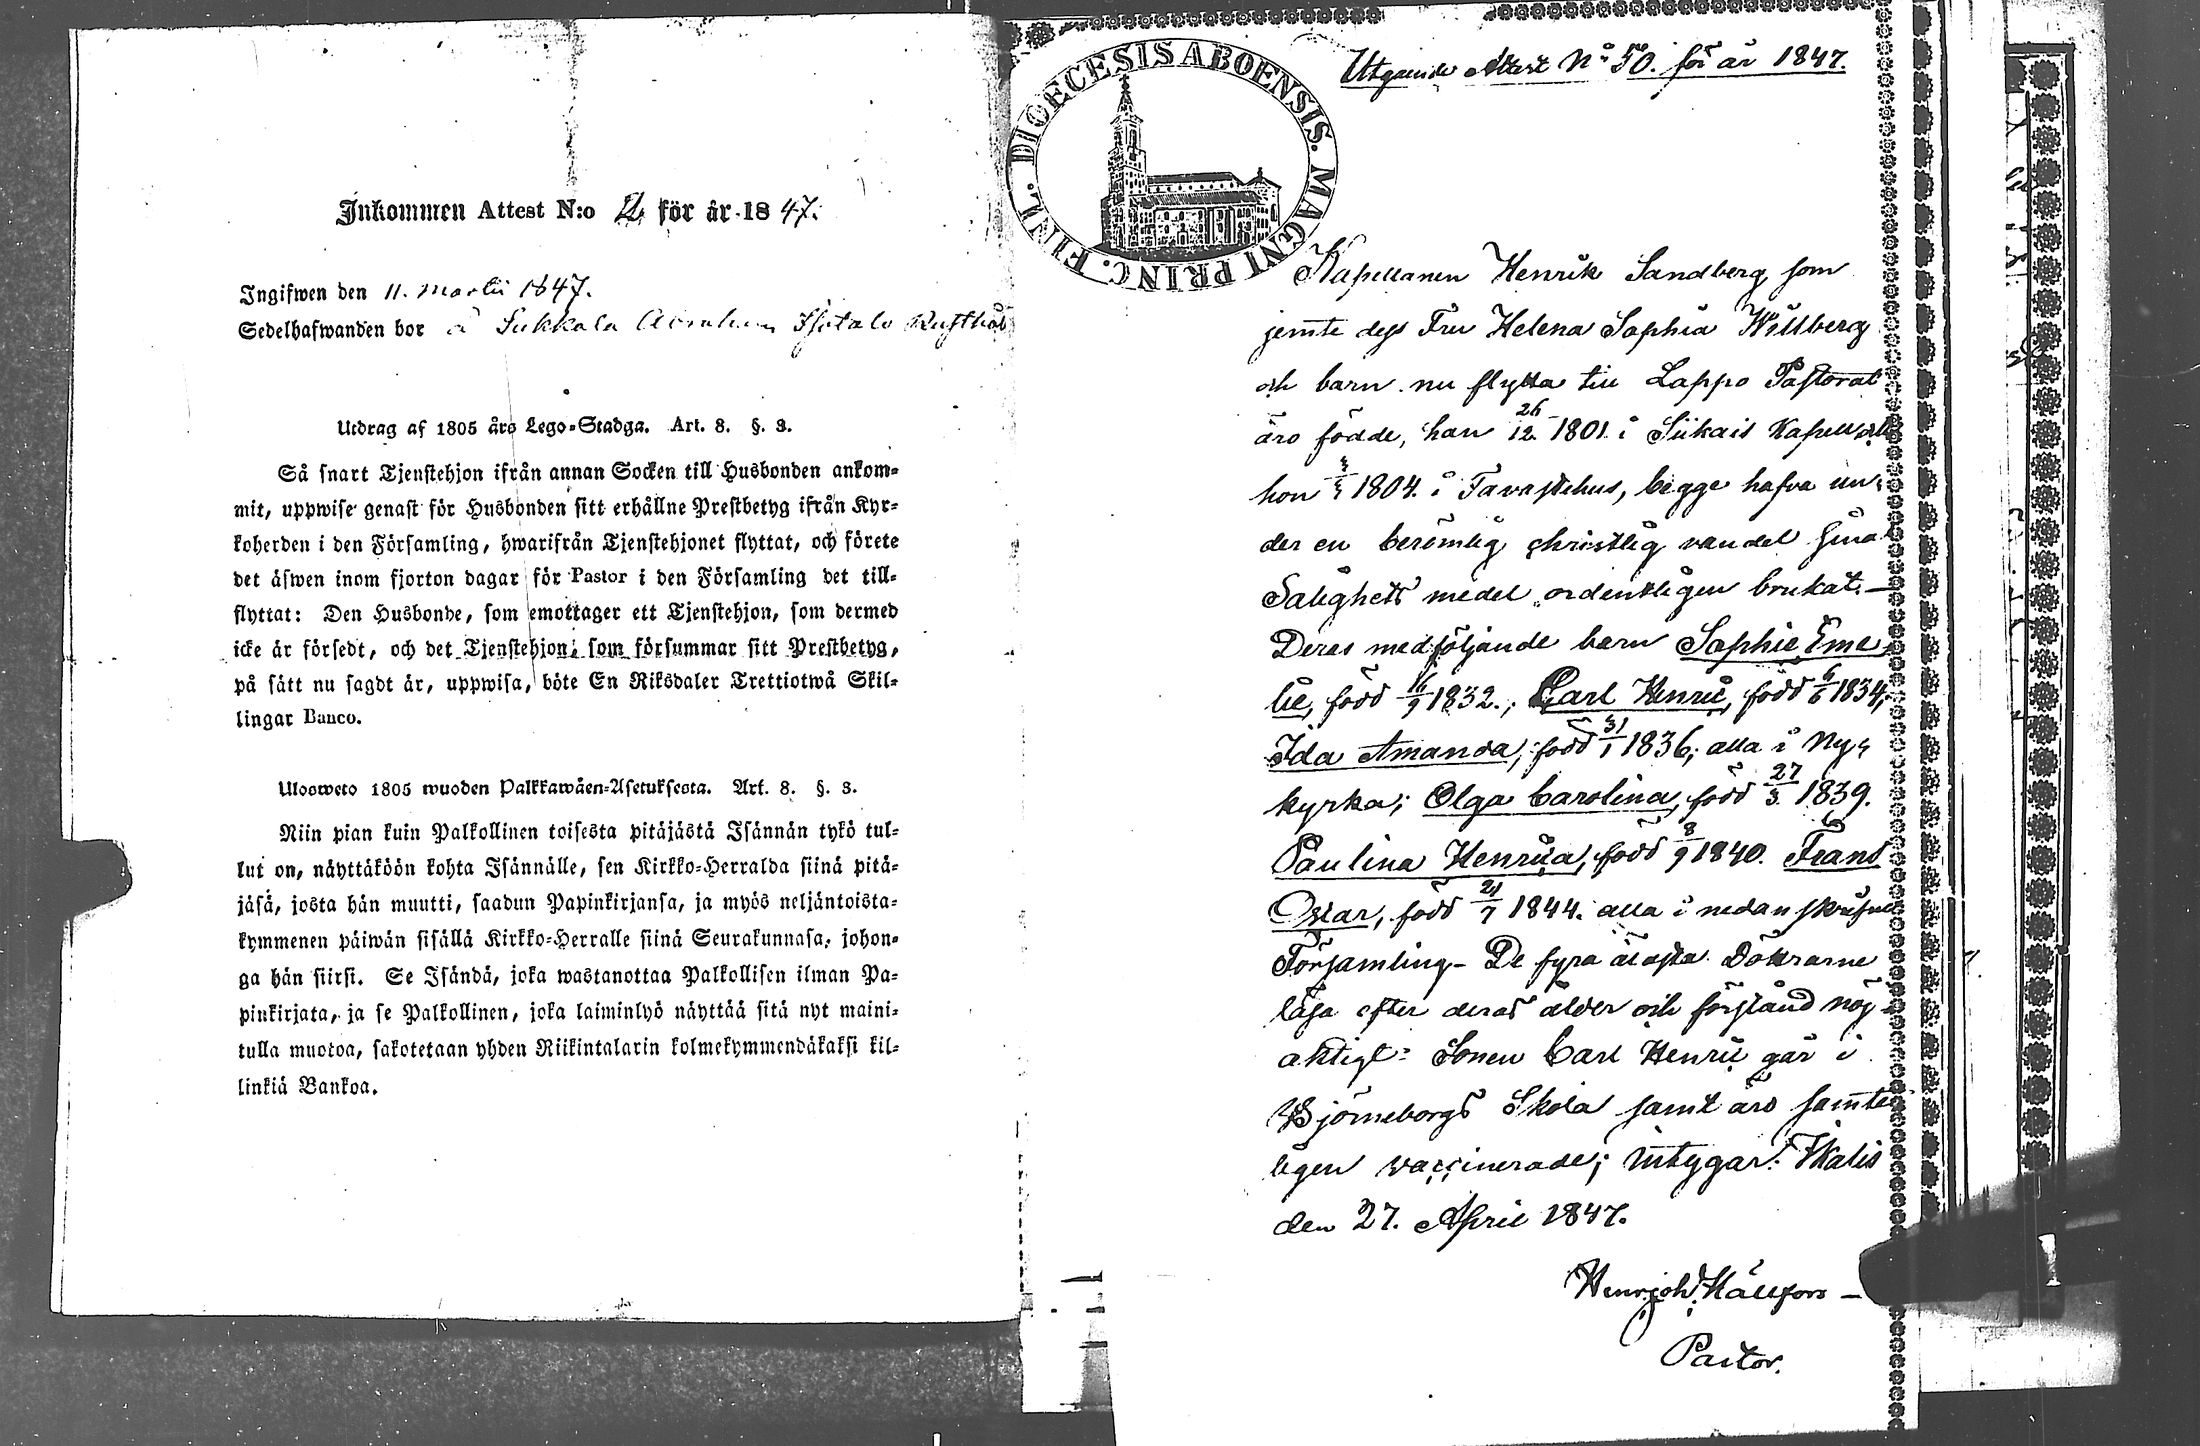 Inkommen Attest N:o 2 för år 1847.
Ingifwen den 11. Martii 1847.
Sedelhafwanden bor å Sukkala Abraham
Utdrag af 1805 års Lego-Stadga. Art. 8. §. 3.
Så snart Tjenstehjon ifrån annan Socken till Husbonden ankom-
mit, uppwise genast för Husbonden sitt erhållne Prestbetyg ifrån Kyr-
koherden i den Församling, hwarifrån Tjenstehjonet flyttat, och förete
det äfwen inom fjorton dagar för Pastor i den Församling det till-
flyttat: Den Husbonde, som emottager ett Tjenstehjon, som dermed
icke är försedt, och det Tjenstehjon, som försummar sitt Prestbetyg,
på sätt nu sagdt är, uppwisa, böte En Riksdaler Trettiotwå Skil-
lingar Banco.
Ulosweto 1805 wuoden Palkkawäen-Asetuksesta. Art. 8. §. 3.
Niin pian kuin Palkollinen toisesta pitäjästä Isännän tykö tul-
lut on, näyttäköön kohta Isännälle, sen Kirkko-Herralda siinä pitä-
jäsä, josta hän muutti, saadun Papinkirjansa, ja myös neljäntoista-
kymmenen päiwän sisällä Kirkko-Herralle siinä Seurakunnasa, johon-
ga hän siirsi. Se Isändä, joka wastanottaa Palkollisen ilman Pa-
pinkirjata, ja se Palkollinen, joka laiminlyö näyttää sitä nyt maini-
tulla muotoa, sakotetaan yhden Riikintalarin kolmekymmendäkaksi kil-
linkiä Bankoa.
DIOECESIS ABOENSIS. MAGNI PRINC. FINL.
Utgående Attest No 50. för år 1847.
Kapellanen Henrik Sandberg som
jemte dess Fru Helena Sophia Willberg
och barn nu flytta till Lappo Pastorat
äro födde, han 26/12 1801 i Siikais Kapell
hon 1804. i Tavastehus, begge hafva un-
der en berömlig christlig vandel sina
Salighets medel ordentligen brukat. —
Deras medföljande barn Sophie Eme-
lie, född 16/9 1832.; Carl Henric, född 6/6 1834;
Ida Amanda, född 31/1 1836; alla i Ny-
kyrka; Olga Carolina, född 27/3 1839.
Paulina Henrica, född 8/9 1840. Frans
Oscar, född 21/7 1844. alla i nedanskrifne
Församling — De fyra äldsta Döttrarne
läsa efter deras ålder och förstånd nöj-
aktigt: Sonen Carl Henric går i
Björneborgs Skola samt äro samte-
ligen vaccinerade; intygar. Ikalis
den 27. April 1847.
Henr. Joh. Hällfors —
Pastor.